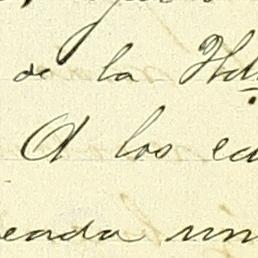 de la Hda
A los ca
eada un